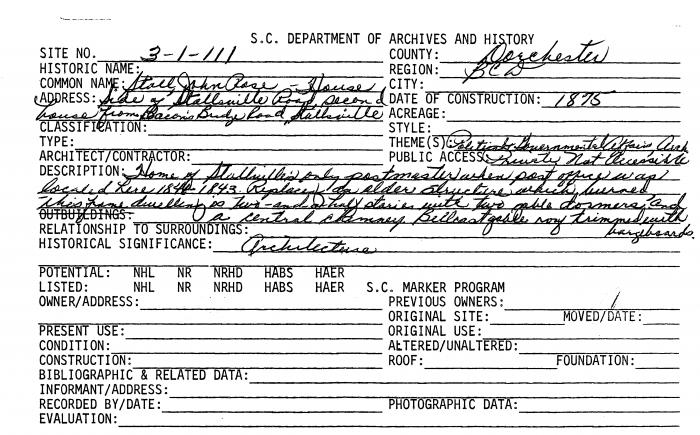 S.C. DEPARTMENT OF ARCHIVES AND HISTORY
SITE NO. 3-1-111 COUNTY: Dorchester
HISTORIC NAME: REGION: BCD
COMMON NAME: Stall, John Rose - House CITY:
ADDRESS: side of Stallsville Road, second DATE OF CONSTRUCTION: 1875
house from Bacons Bridge Road, Stallsville ACREAGE:
CLASSIFICATION: STYLE:
TYPE: THEME(S): Politics & Governmental Affairs, Arch
ARCHITECT/CONTRACTOR: PUBLIC ACCESS: Private Not Accessible
DESCRIPTION: Home of Stallville's only postmaster when post office was
located here 1842-1843. Replaced an older structure which burned
This frame dwelling is two-and-a-half stories with two gable dormers, and
OUTBUILDINGS: a central chimney. Bellcast gable roof trimmed with
RELATIONSHIP TO SURROUNDINGS: bargeboards.
HISTORICAL SIGNIFICANCE: Architecture
POTENTIAL: NHL NR NRHD HABS HAER
LISTED: NHL NR NRHD HABS HAER S.C. MARKER PROGRAM
OWNER/ADDRESS: PREVIOUS OWNERS: /
ORIGINAL SITE: MOVED/DATE:
PRESENT USE: ORIGINAL USE:
CONDITION: ALTERED/UNALTERED:
CONSTRUCTION: ROOF: FOUNDATION:
BIBLIOGRAPHIC & RELATED DATA:
INFORMANT/ADDRESS:
RECORDED BY/DATE: PHOTOGRAPHIC DATA:
EVALUATION: